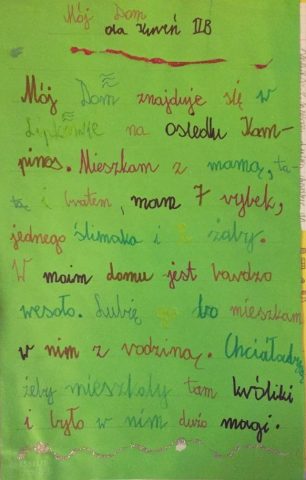 Mój Dom
dla Kwreń IIB
Mój Dom znajduje się w
Lipkowie na osiedlu Kam-
pinos. Mieszkam z mamą, ta
tą i bratem, mam 7 rybek,
jednego ślimaka i 2 żaby.
W moim domu jest bardzo
wesoło. Lubię go bo mieszkam
w nim z rodziną. Chciałabym
żeby mieszkały tam króliki
i było w nim dużo magi.